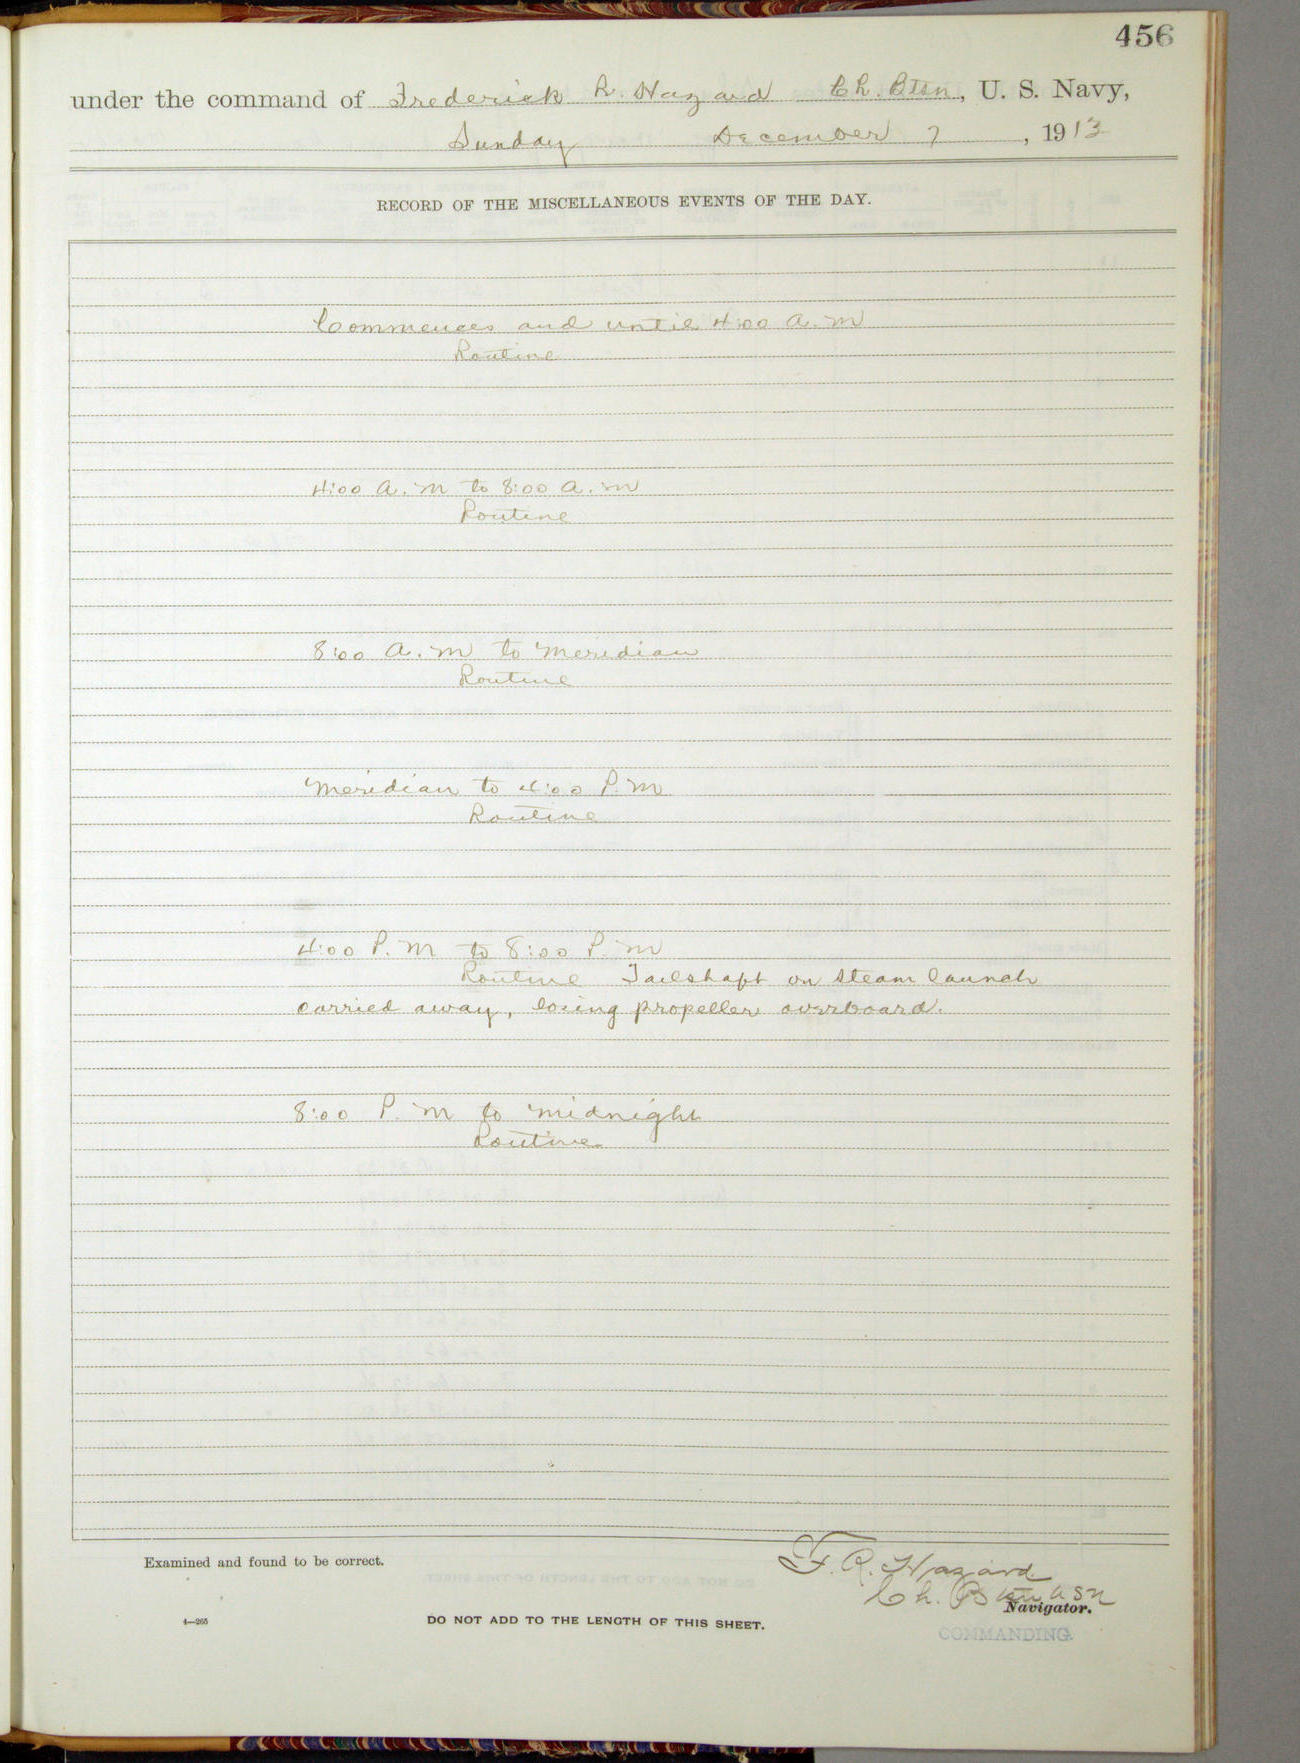 456
under the command of Frederick R. Hazard Ch. Btsn, U. S. Navy,
Sunday December 7, 1913
RECORD OF THE MISCELLANEOUS EVENTS OF THE DAY.
Commences and until 4:00 A.M
Routine
4:00 A.M to 8:00 A.M
Routine
8:00 A.M to Meridian
Routine
Meridian to 4:00 P.M
Routine
4:00 P.M to 8:00 P.M
Routine Tailshaft on steam launch
carried away, losing propeller overboard.
8:00 P.M to midnight
Routine.
Examined and found to be correct.
F. R. Hazard
Ch. Btsn USN
Navigator.
4—265
DO NOT ADD TO THE LENGTH OF THIS SHEET.
COMMANDING.